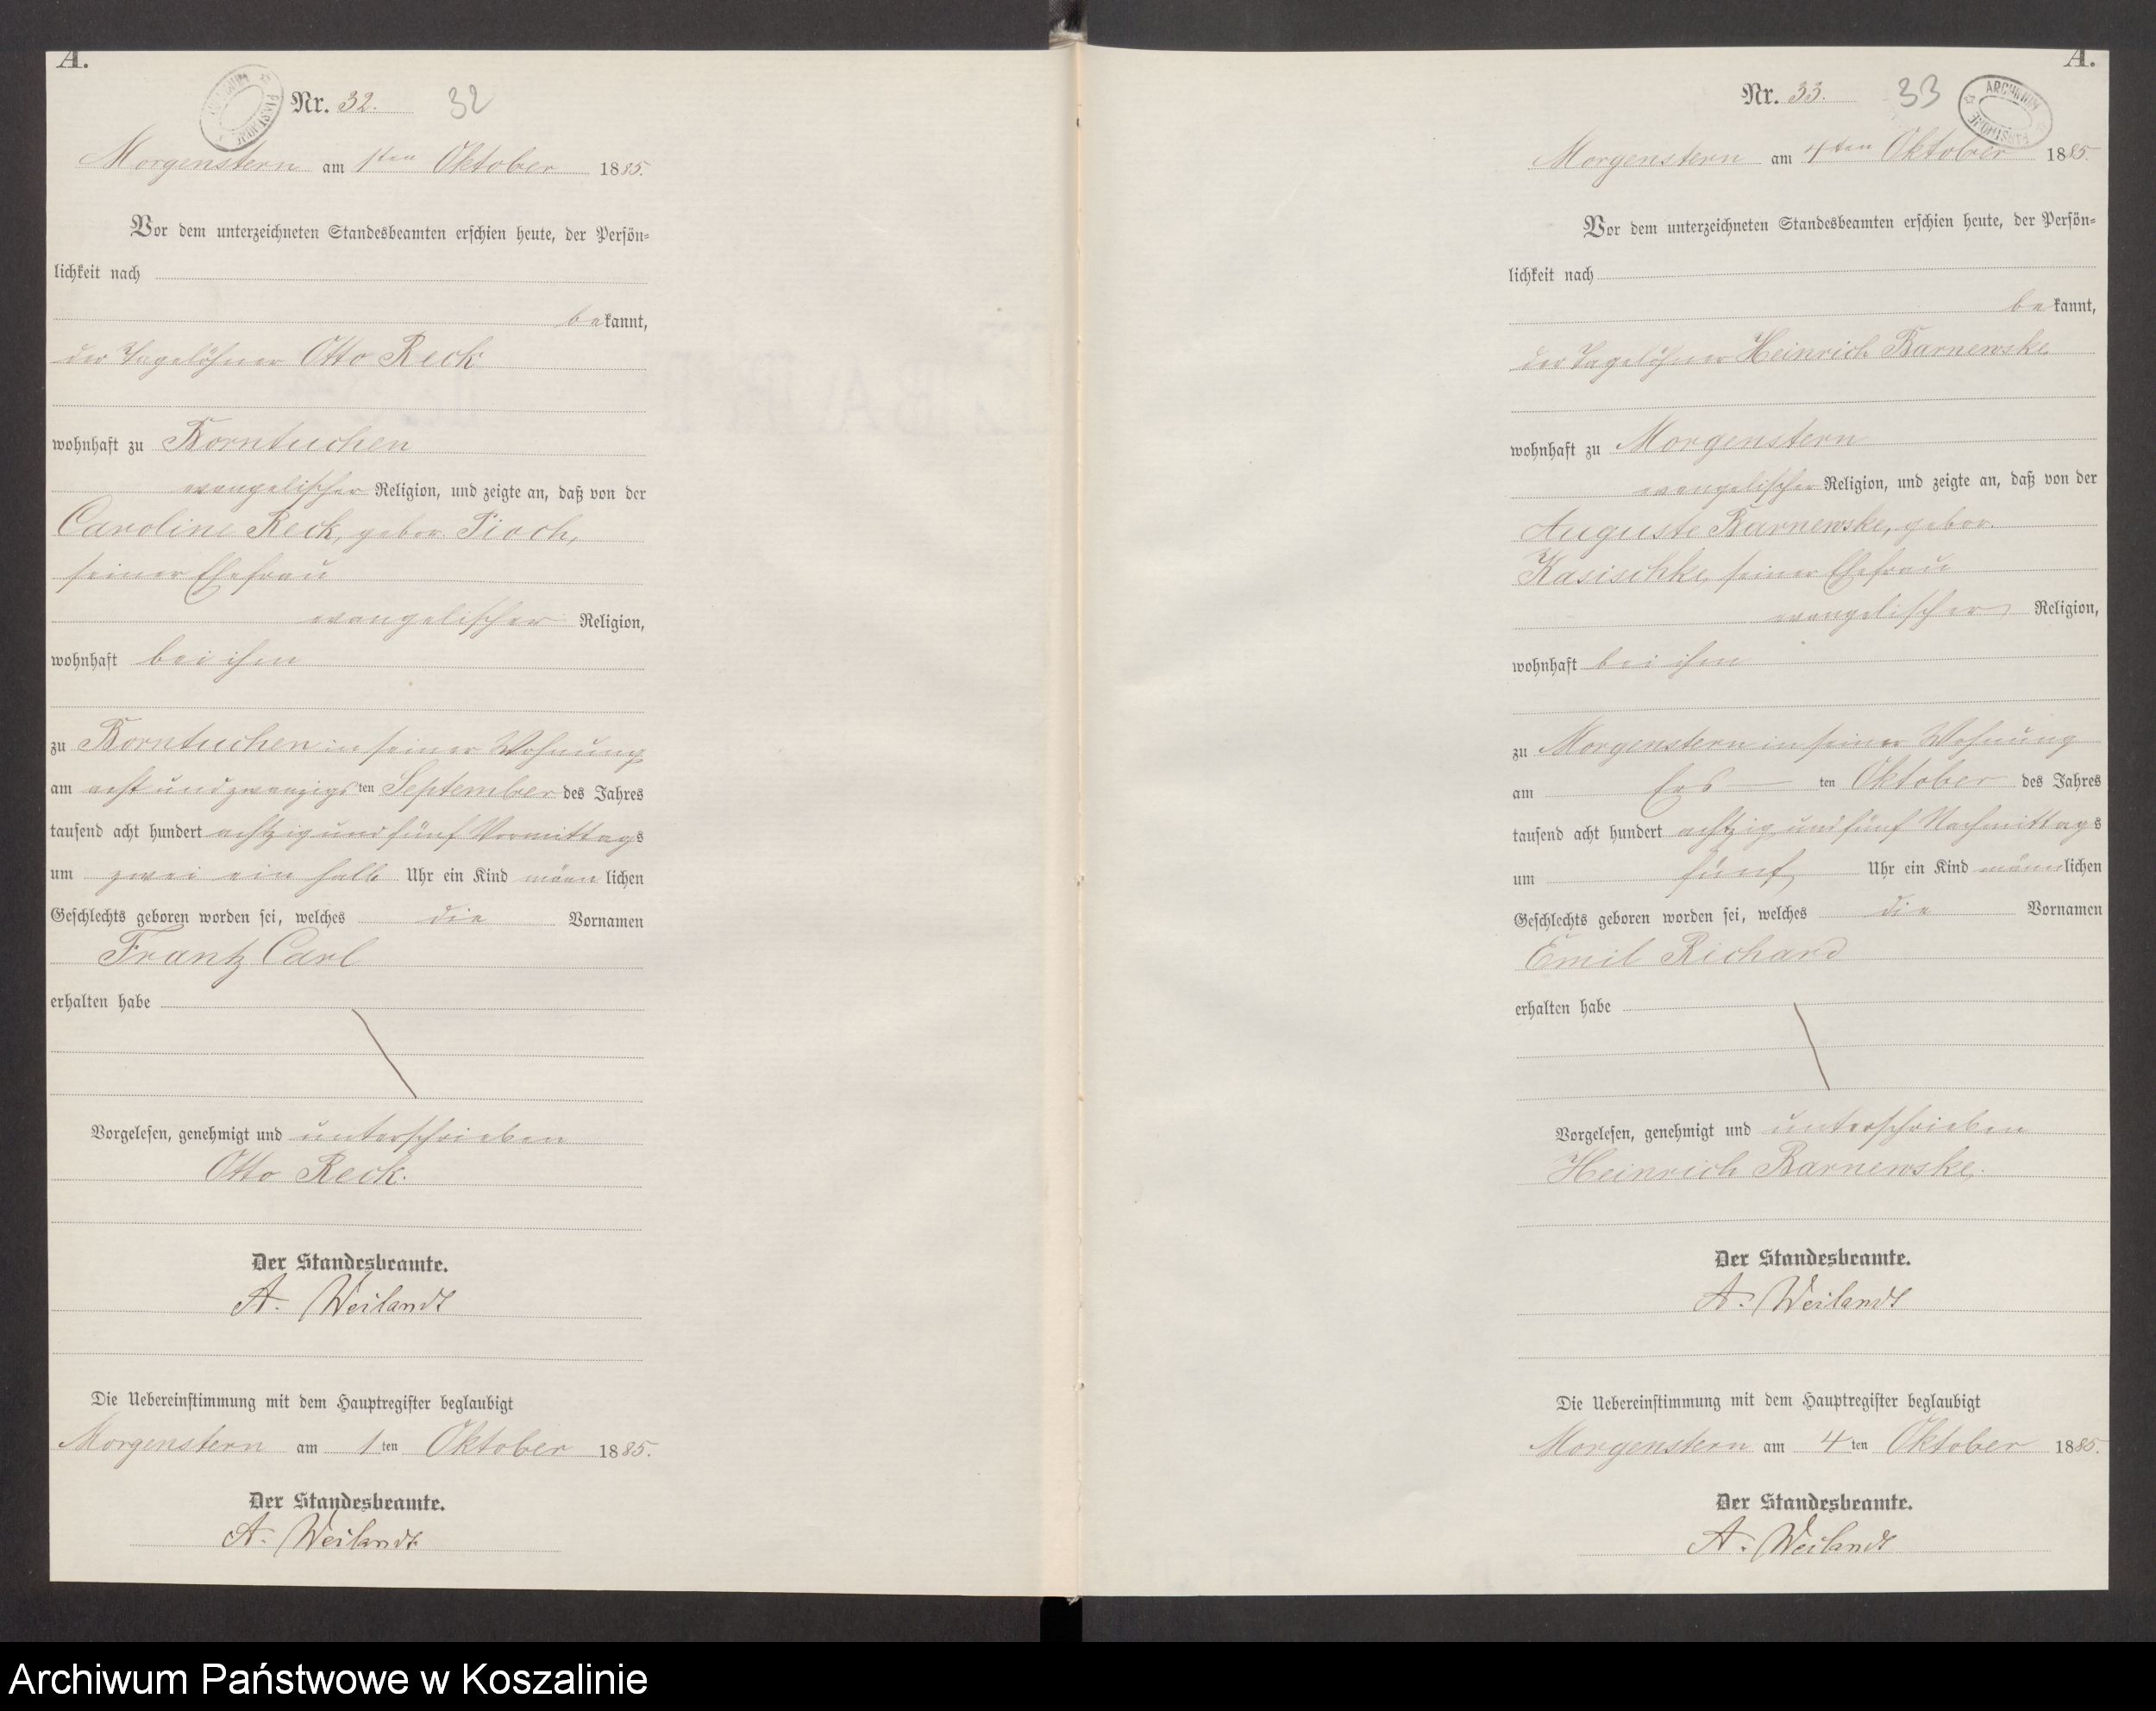 A.
Nr. 32. 32
Morgenstern am 1sten Oktober 1885.
Vor dem unterzeichneten Standesbeamten erschien heute, der Persön=
lichkeit nach
bekannt,
der Tagelöhner Otto Reck
wohnhaft zu Borntuchen
evangelischer Religion, und zeigte an, daß von der
Caroline Reck, gebor. Pioch,
seiner Ehefrau
evangelischer Religion,
wohnhaft bei ihm
zu Borntuchen in seiner Wohnung
am acht und zwanzigsten September des Jahres
tausend acht hundert achtzig und fünf Vormittags
um zwei ein halb Uhr ein Kind männlichen
Geschlechts geboren worden sei, welches die Vornamen
Frantz Carl
erhalten habe
Vorgelesen, genehmigt und unterschrieben
Otto Reck.
Der Standesbeamte.
A. Weilandt
Die Uebereinstimmung mit dem Hauptregister beglaubigt
Morgenstern am 1ten Oktober 1885.
Der Standesbeamte.
A. Weilandt
A.
Nr. 33. 33
ARCHIWUM PAŃSTWOWE
Morgenstern am 4ten Oktober 1885.
Vor dem unterzeichneten Standesbeamten erschien heute, der Persön=
lichkeit nach
bekannt,
der Tagelöhner Heinrich Barnewske
wohnhaft zu Morgenstern
evangelischer Religion, und zeigte an, daß von der
Auguste Barnewske, gebor.
Kasischke, seiner Ehefrau
evangelischer Religion,
wohnhaft bei ihm
zu Morgenstern in seiner Wohnung
am Ers ten Oktober des Jahres
tausend acht hundert achtzig und fünf Nachmittags
um fünf Uhr ein Kind männlichen
Geschlechts geboren worden sei, welches die Vornamen
Emil Richard
erhalten habe
Vorgelesen, genehmigt und unterschrieben
Heinrich Barnewske.
Der Standesbeamte.
A. Weilandt
Die Uebereinstimmung mit dem Hauptregister beglaubigt
Morgenstern am 4ten Oktober 1885.
Der Standesbeamte.
A. Weilandt
Archiwum Państwowe w Koszalinie